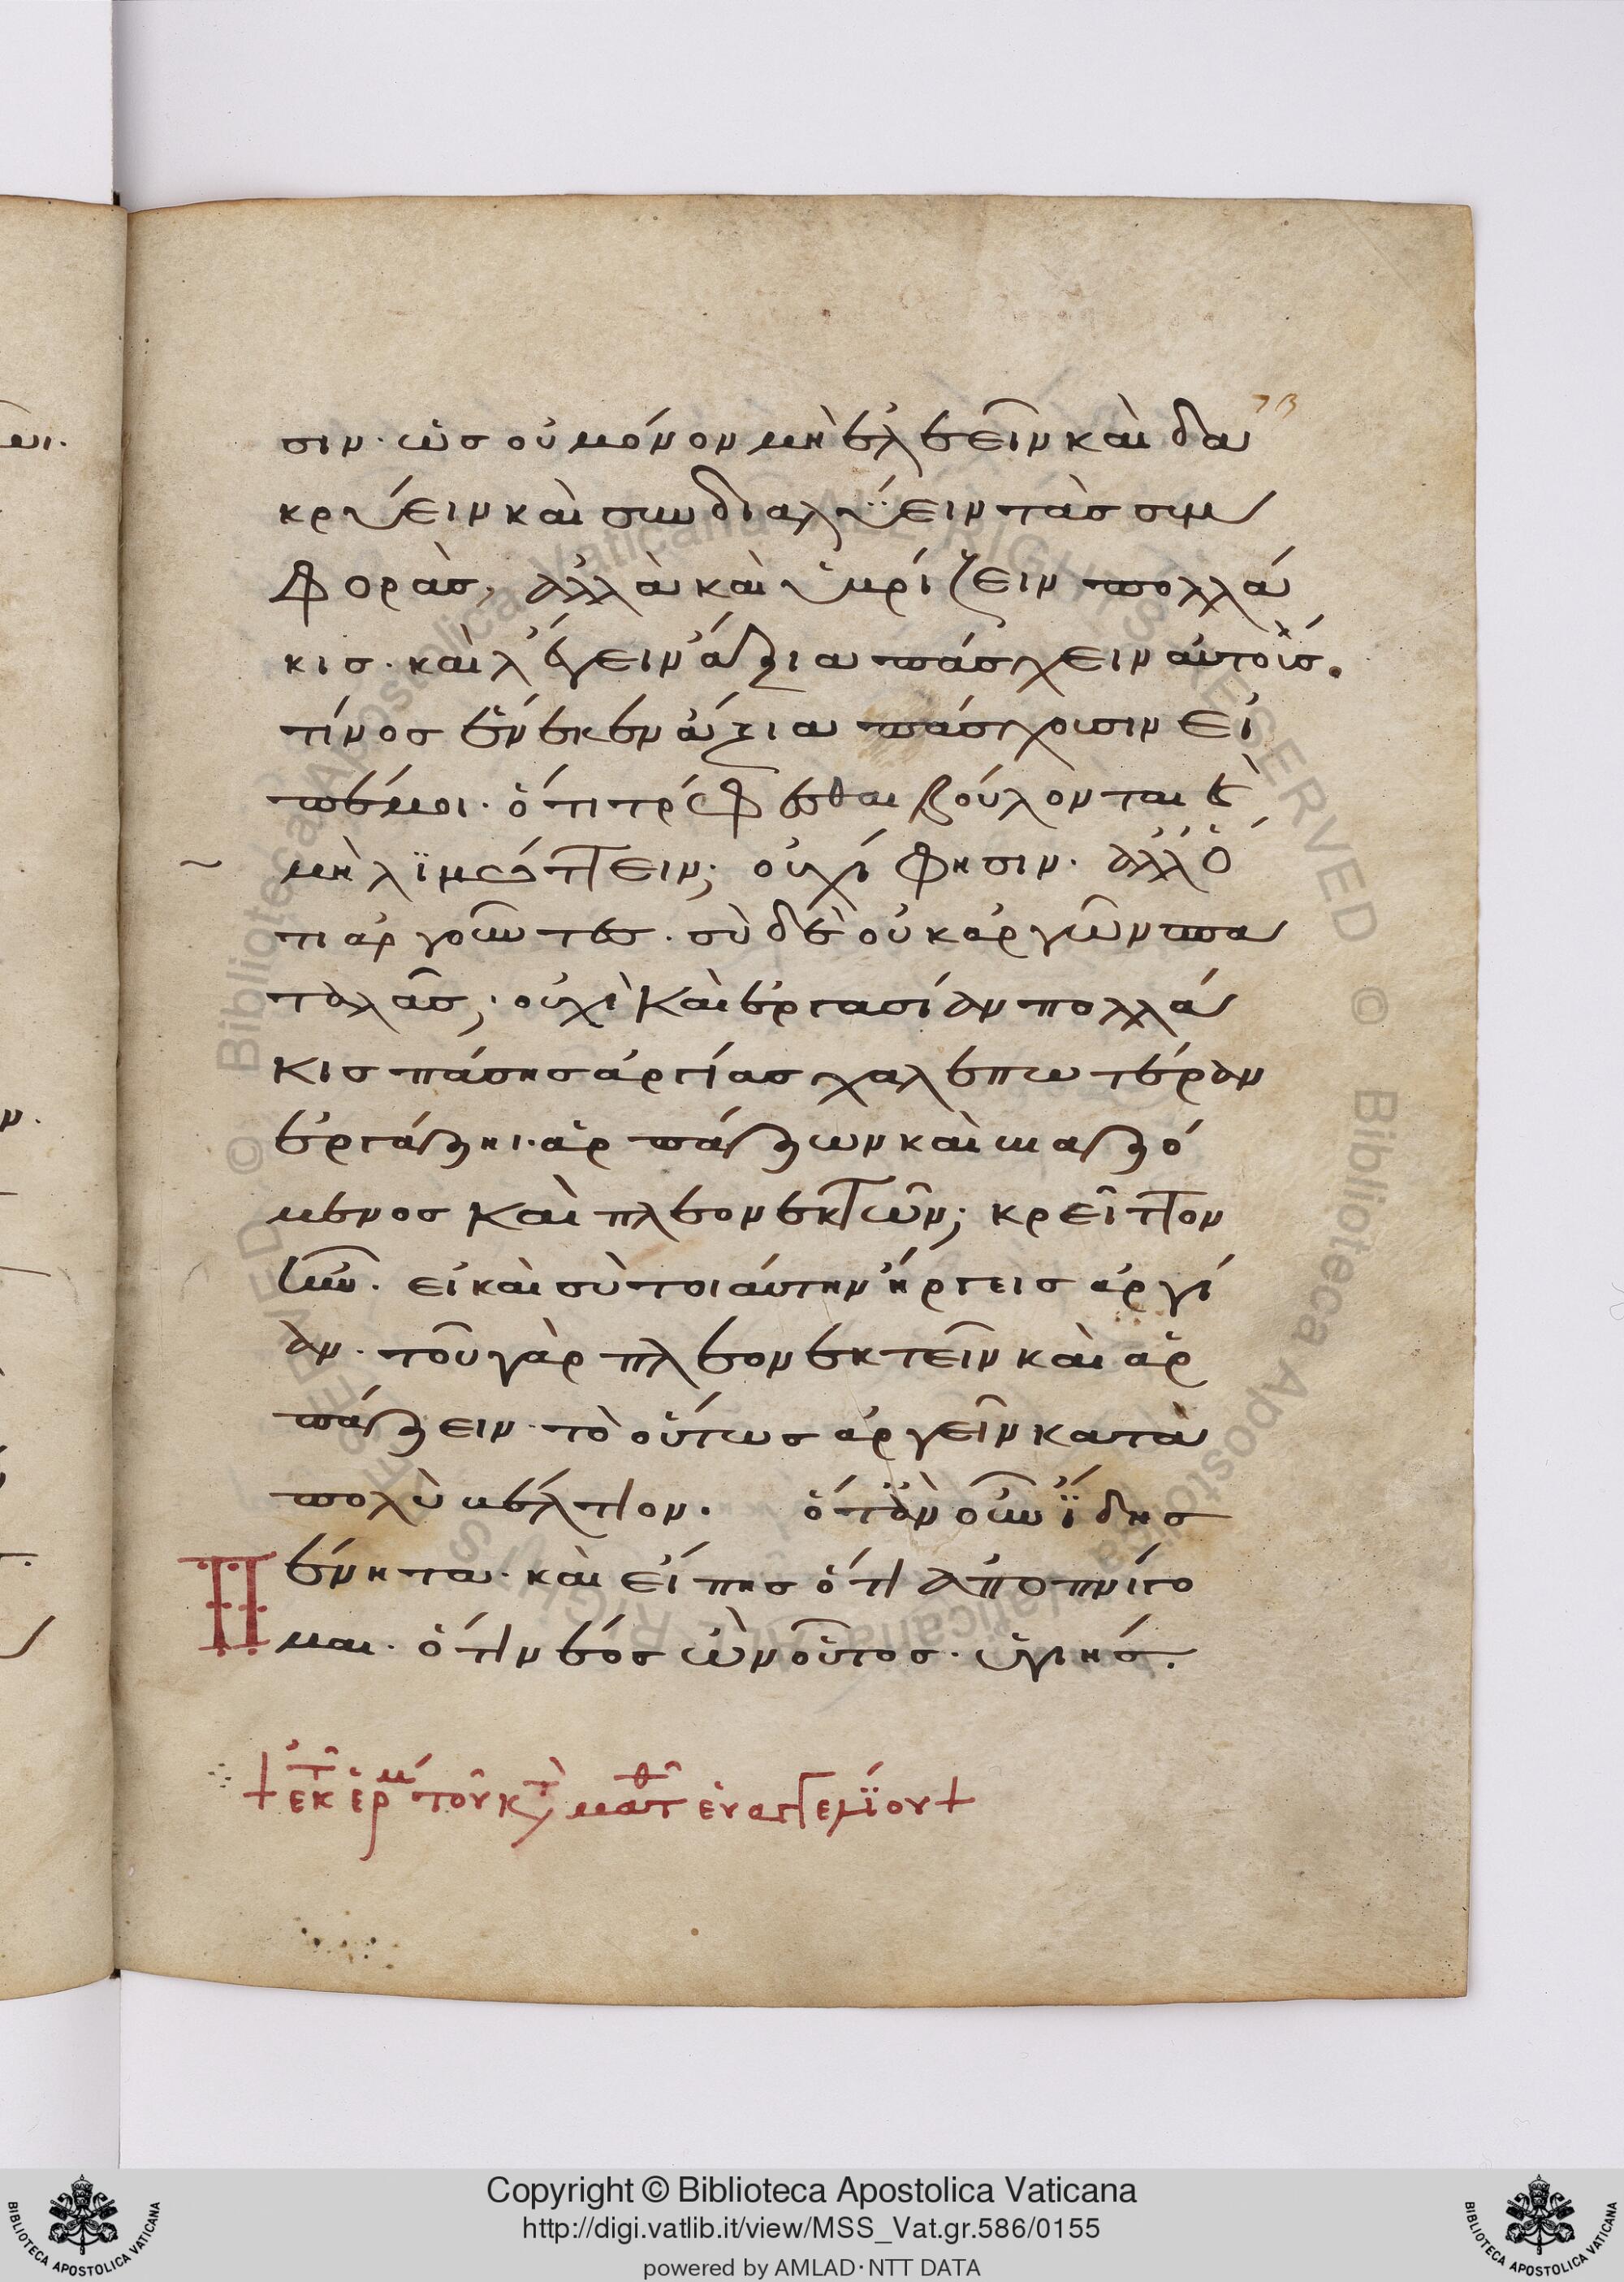 73
σιν· ὡς οὐ μόνον μὴ ἐλεεῖν καὶ δα
κρύειν καὶ συνδιαλύειν τὰς συμ
φοράς, ἀλλὰ καὶ ὑβρίζειν πολλά
κις· καὶ λέγειν ἄξια πάσχειν αὐτούς.
τίνος ἕνεκεν ἄξια πάσχουσιν εἰ
πέ μοι· ὅτι τρέφεσθαι βούλονται καὶ
μὴ λιμώττειν; οὐχί φησιν· ἀλλ' ὅ
τι ἀργοῦντες· σὺ δὲ οὐκ ἀργῶν σπα
ταλᾶς; οὐχὶ καὶ ἐργασίαν πολλά
κις πάσης ἀργίας χαλεπωτέραν
ἐργάζηι· ἁρπάζων καὶ βιαζό
μενος καὶ πλεονεκτῶν; κρεῖττον
ἦν· εἰ καὶ σὺ τοιαύτην ἤργεις ἀργί
αν· τοῦ γὰρ πλεονεκτεῖν καὶ ἁρ
πάζειν τὸ οὕτως ἀργεῖν κατὰ
πολὺ βέλτιον. ὅταν οὖν ἴδης
Πένητα· καὶ εἴπης ὅτι ἀποπνίγο
μαι· ὅτι νέος ὢν οὗτος· ὑγιής.
+ ἐκ τ ἑρμ τοῦ κτ ματθ εὐαγγελίου +
Copyright © Biblioteca Apostolica Vaticana
http://digi.vatlib.it/view/MSS_Vat.gr.586/0155
powered by AMLAD·NTT DATA